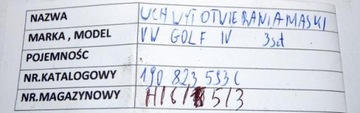 NAZWA UCHWYT OTWIERANIA MASKI
MARKA , MODEL VW GOLF IV 3szt
POJEMNOŚĆ
NR.KATALOGOWY 190 823 593C
NR.MAGAZYNOWY H/6/15/3